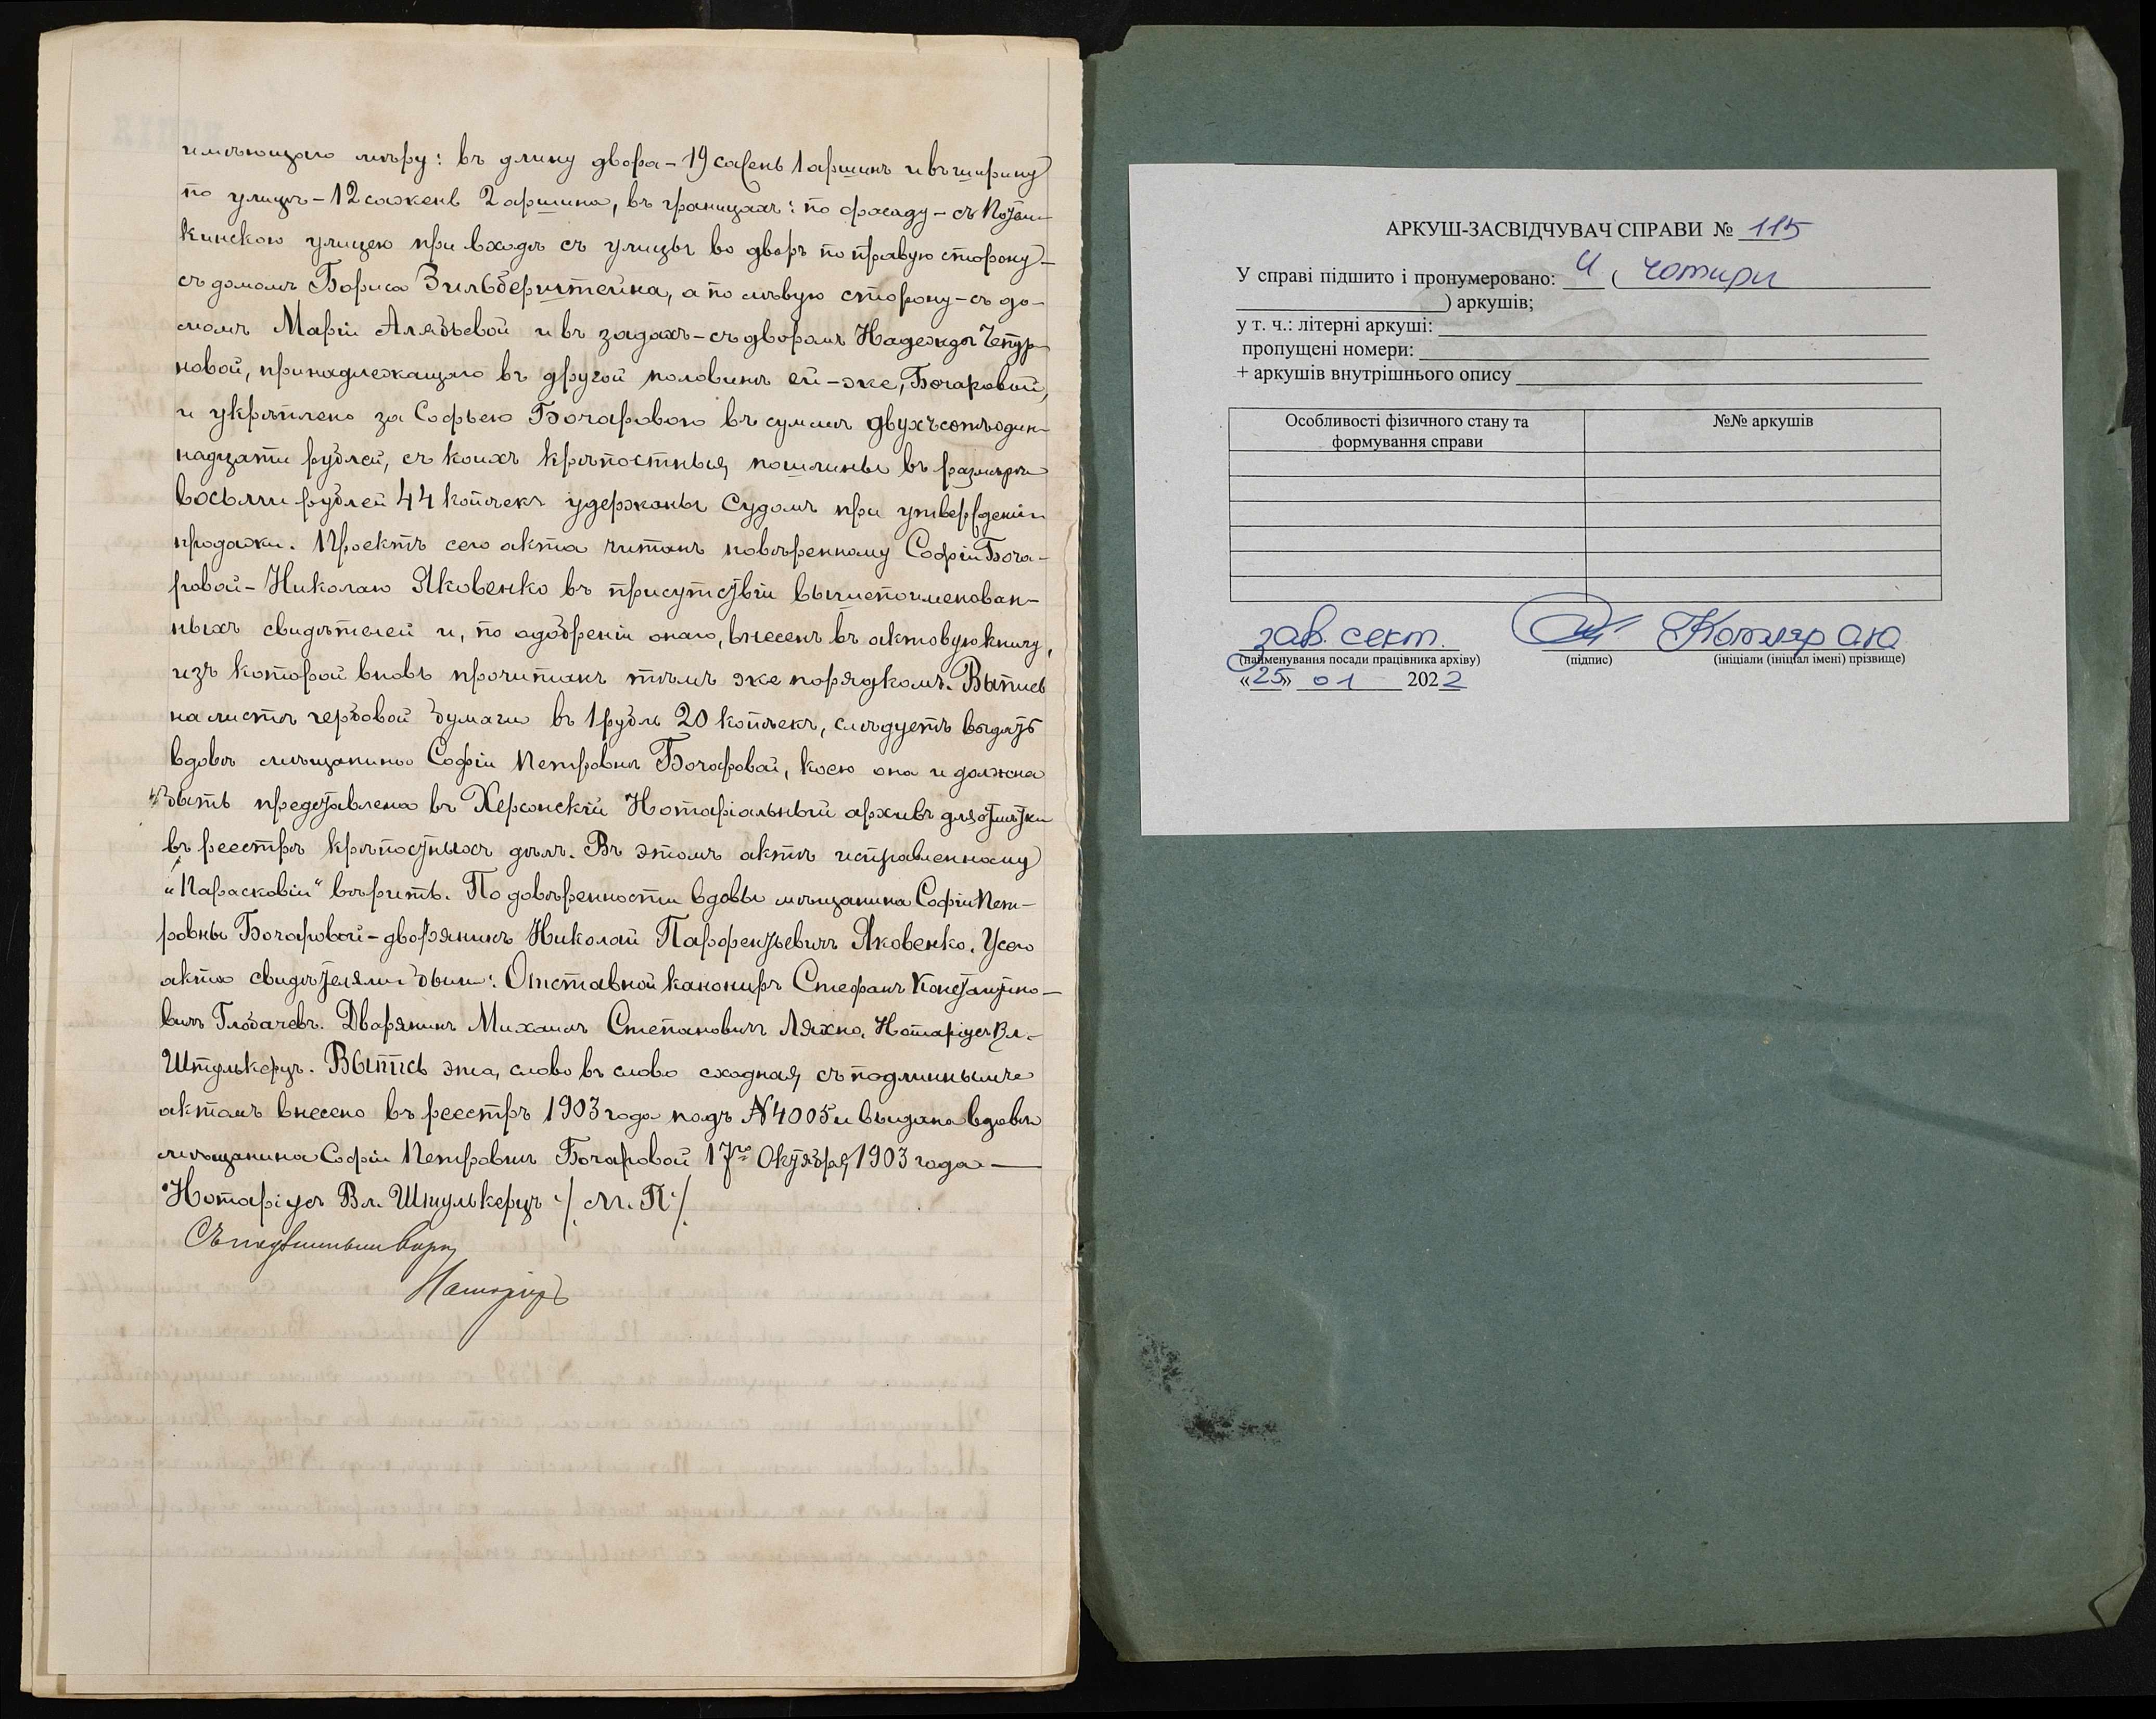 имѣющаго мѣру: въ длину двора – 19 сажень 1 аршинъ и въ ширину
по улицѣ – 12 сажень 2 аршина, въ границахъ: по фасаду – съ Потем-
кинскою улицею при входѣ съ улицы во дворъ по правую сторону –
съ домомъ Бориса Зильберштейна, а по лѣвую сторону – съ до-
момъ Маріи Алябьевой и въ задахъ – съ дворомъ Надежды Чепур-
новой, принадлежащаго въ другой половинѣ ей-же, Бочаровой,
и укрѣплено за Софьею Бочаровою въ суммѣ двухъ сотъ один-
надцати рублей, съ коихъ крѣпостныя пошлины въ размѣрѣ
восьми рублей 44 копѣекъ удержаны Судомъ при утвержденіи
продажи. Проектъ сего акта читанъ повѣренному Софіи Боча-
ровой – Николаю Яковенко въ присутствіи вышепоименован-
ныхъ свидѣтелей и, по одобреніи онаго, внесенъ въ актовую книгу,
изъ которой вновь прочитанъ тѣмъ же порядкомъ. Выпись
на листѣ гербовой бумаги въ 1 рубль 20 копѣекъ, слѣдуетъ выдать
вдовѣ мѣщанина Софіи Петровнѣ Бочаровой, коею она и должна
быть представлена въ Херсонскій Нотаріальный архивъ для отмѣтки
въ реестрѣ крѣпостныхъ дѣлъ. Въ этомъ актѣ исправленному
„Парасковіи“ вѣрить. По довѣренности вдовы мѣщанина Софіи Пет-
ровны Бочаровой – дворянинъ Николай Парфентьевичъ Яковенко. У сего
акта свидѣтелями были: Отставной канониръ Стефанъ Константино-
вичъ Глобачевъ. Дворянинъ Михаилъ Степановичъ Ляхно. Нотаріусъ Вл.
Штулькерцъ. Выпись эта, слово въ слово сходная съ подлиннымъ
актомъ внесена въ реестръ 1903 года подъ N 4005 и выдана вдовѣ
мѣщанина Софіи Петровнѣ Бочаровой 17го Октября 1903 года —
Нотаріусъ Вл. Штулькерцъ /М. П./
Съ подлиннымъ вѣрно
Нотаріусъ
АРКУШ-ЗАСВІДЧУВАЧ СПРАВИ № 115
У справі підшито і пронумеровано: 4 ( чотири
) аркушів;
у т. ч.: літерні аркуші:
пропущені номери:
+ аркушів внутрішнього опису
Особливості фізичного стану та формування справи
№№ аркушів
зав. сект. Котляр О.Ю.
(найменування посади працівника архіву) (підпис) (ініціали (ініціал імені) прізвище)
«25» 01 2022